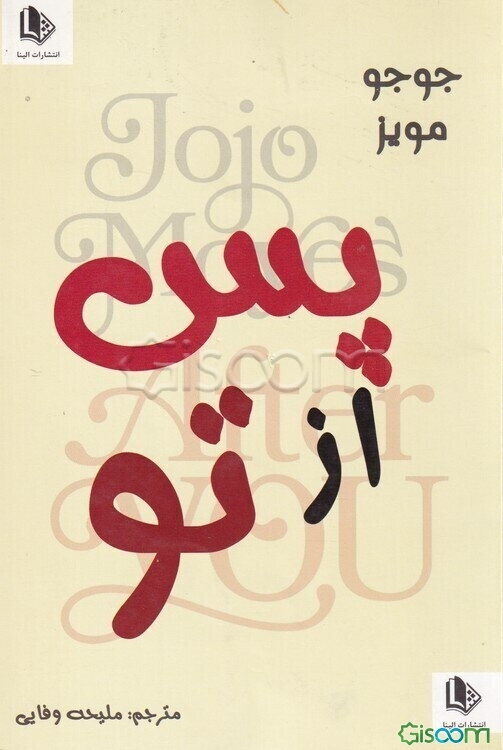 انتشارات البنا
جوجو
مویز
Jojo
Moyes
پس
Gisoom
After
از
تو
YOU
مترجم: ملیحه وفایی
انتشارات البنا
Gisoom
.com